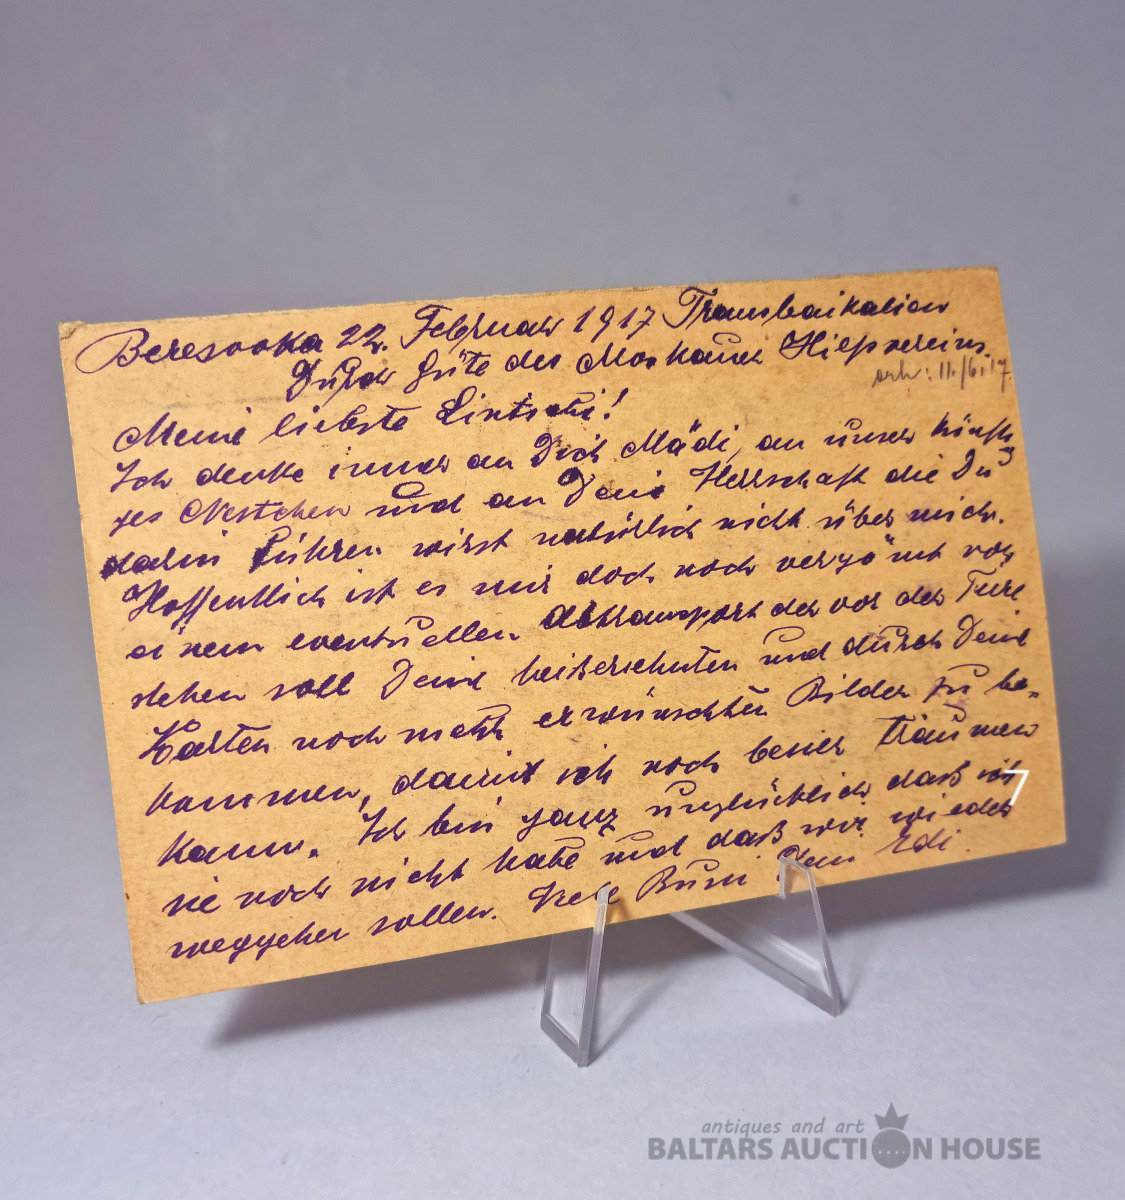 Beresovka 22. Februar 1917 Transbaikalien
Durch Güte des Moskauer Hilfsvereins.
erh: 11./6.17.
Meine liebste
Ich denke immer an Dich Mädi, an unser künfti
ges Nestchen und an Deine Herrschaft die Du
darin führen wirst natürlich nicht über mich.
Hoffentlich ist es mir doch noch vergönnt vor
einem eventuellen Abtransport der vor der Türe
stehen soll Deine heißersehnten und durch Deine
Karten noch mehr erwünschten Bilder zu be-
kommen, damit ich noch besser träumen
kann. Ich bin ganz unglücklich daß ich
sie noch nicht habe und daß wir wieder
weggehen sollen. Bussi Dein Edi.
antiques and art
BALTARS AUCTION HOUSE